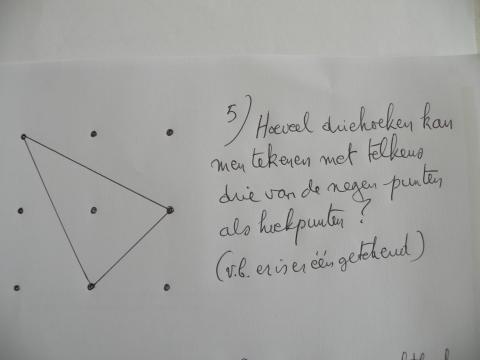 5) Hoeveel driehoeken kan
men tekenen met telkens
drie van de negen punten
als hoekpunten?
(v.b. er is er één getekend)